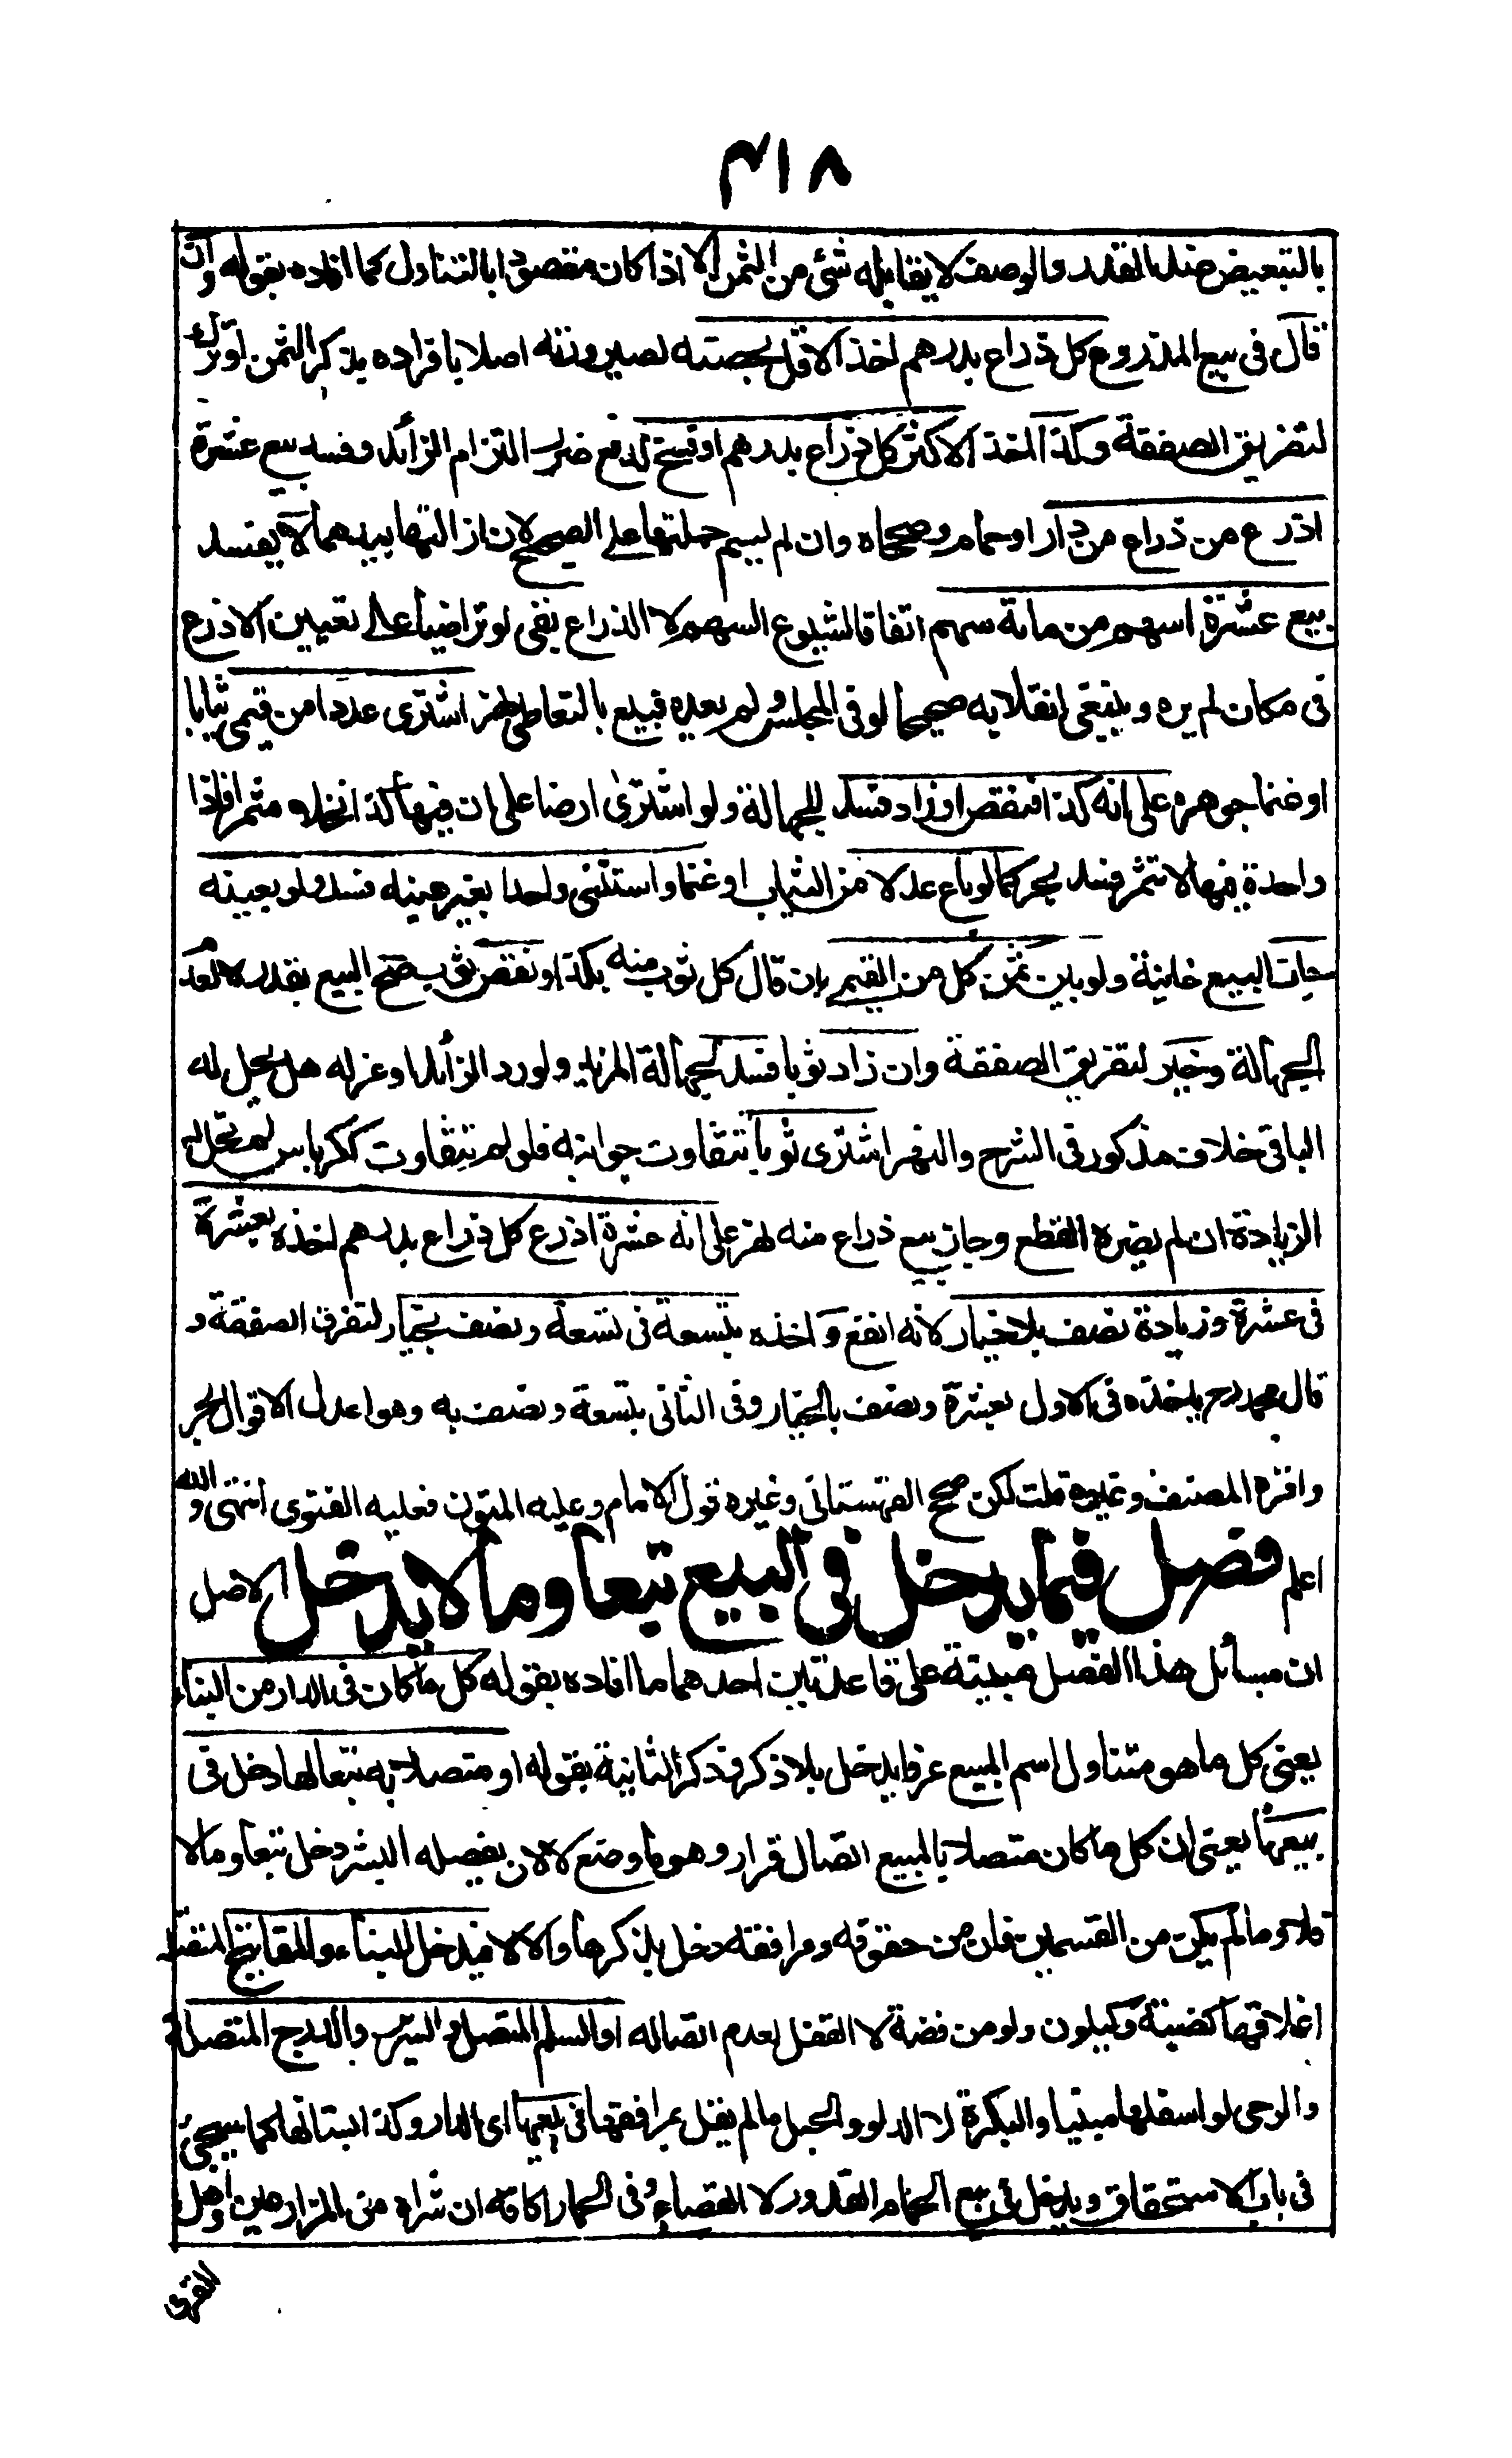 ٣١٨
بالتبعيض ضد القدر والوصف لا يقابله شئ من الثمن الا اذا كان مقصودا بالتناول كما افاده بقوله وان
قال فى بيع المذروع كل ذراع بدرهم اخذ الاقل بحصته لصيرورته اصلا بافراده بذكر الثمن او ترك
لتفريق الصفقة وكذا اخذ الاكثر كل ذراع بدرهم او فسخ لدفع ضرر التزام الزائد وفسد بيع عشرة
اذرع من ذراع من دار او حمام وصححاه وان لم يسم جملتها على الصحيح لان ازالتها بيدهما لا يفسد
بيع عشرة اسهم من مائة سهم اتفاقا لشيوع السهم لا الذراع بقى لو تراضيا على تعيين الاذرع
فى مكان لم يره وينبغى انقلابه صحيحا لو فى المجلس ولو بعده فبيع بالتعاطى نهر اشترى عددا من قيمى ثيابا
او غنما جوهره على انه كذا فنقص او زاد فسد للجهالة ولو اشترى ارضا على ان فيها كذا نخلا مثمرا فاذا
واحدة فيها لا تثمر فسد بحر كما لو باع عدلا من الثياب او غنما واستثنى واحدا بغير عينه فسد ولو بعينه
جاز البيع خانية ولو بين ثمن كل من القيمى بان قال كل ثوب منه بكذا ونقص ثوب صح البيع بقدره لعدم
الجهالة وخير لتفريق الصفقة وان زاد ثوبا فسد لجهالة المزيد ولو رد الزائد او عزله هل يحل له
الباقى خلاف مذكور فى الشرح والنهر اشترى ثوبا تتفاوت جوانبه فلو لم تتفاوت ككرباس لم تحل له
الزيادة ان لم يضره القطع وجاز بيع ذراع منه نهر على انه عشرة اذرع كل ذراع بدرهم اخذه بعشرة
فى عشرة وزيادة نصف بلا خيار لانه انفع واخذه بتسعة فى تسعة ونصف بخيار لتفرق الصفقة و
قال محمد رح ياخذه فى الاول بعشرة ونصف بالخيار وفى الثانى بتسعة ونصف به وهو اعدل الاقوال بحر
واقره المصنف وغيره قلت لكن صحح القهستانى وغيره قول الامام وعليه المتون فعليه الفتوى انتهى والله
اعلم فصل فيما يدخل فى البيع تبعا وما لا يدخل الاصل
ان مسائل هذا الفصل مبنية على قاعدتين احدهما ما افاده بقوله كل ما كان فى الدار من البناء
يعنى كل ما هو متناول اسم المبيع عرفا يدخل بلا ذكر وذكر الثانية بقوله او متصلا به تبعا لها دخل فى
بيعها يعنى ان كل ما كان متصلا بالمبيع اتصال قرار وهو ما وضع لا لان يفصله البشر دخل تبعا وما لا
فلا وما لم يكن من القسمين فان من حقوقه ومرافقه دخل بذكرها والا لا فيدخل البناء والمفاتيح المتصلة
اغلاقها كضبة وكيلون ولو من فضة لا القفل لعدم اتصاله او السلم المتصل والسرير والدرج المتصلة
والرحى لو اسفلها مبنيا والبكرة لا الدلو والحبل ما لم يقل بمرافقها فى بيعها اى الدار وكذا بستانها كما سيجئ
فى باب الاستحقاق ويدخل فى بيع الحمام القدور لا القصاع وفى الحمار اكافه ان شراه من المزارعين واهل
القرى